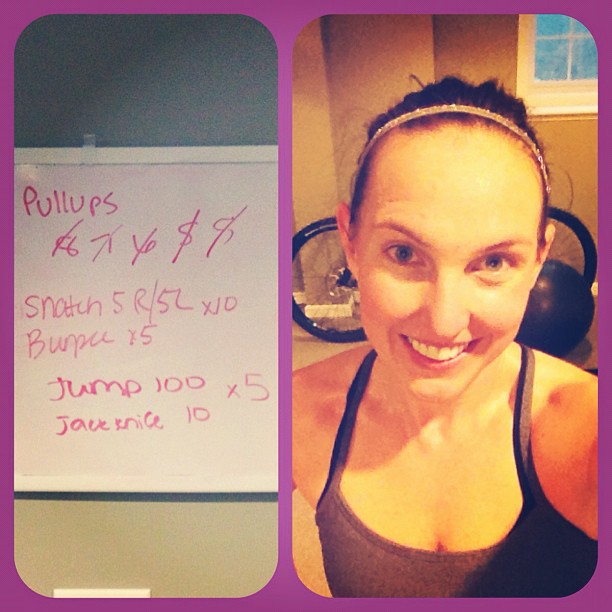 Pullups
Snatch 5 R/5L x10
Burpee x5
Jump 100 x5
Jackknife 10